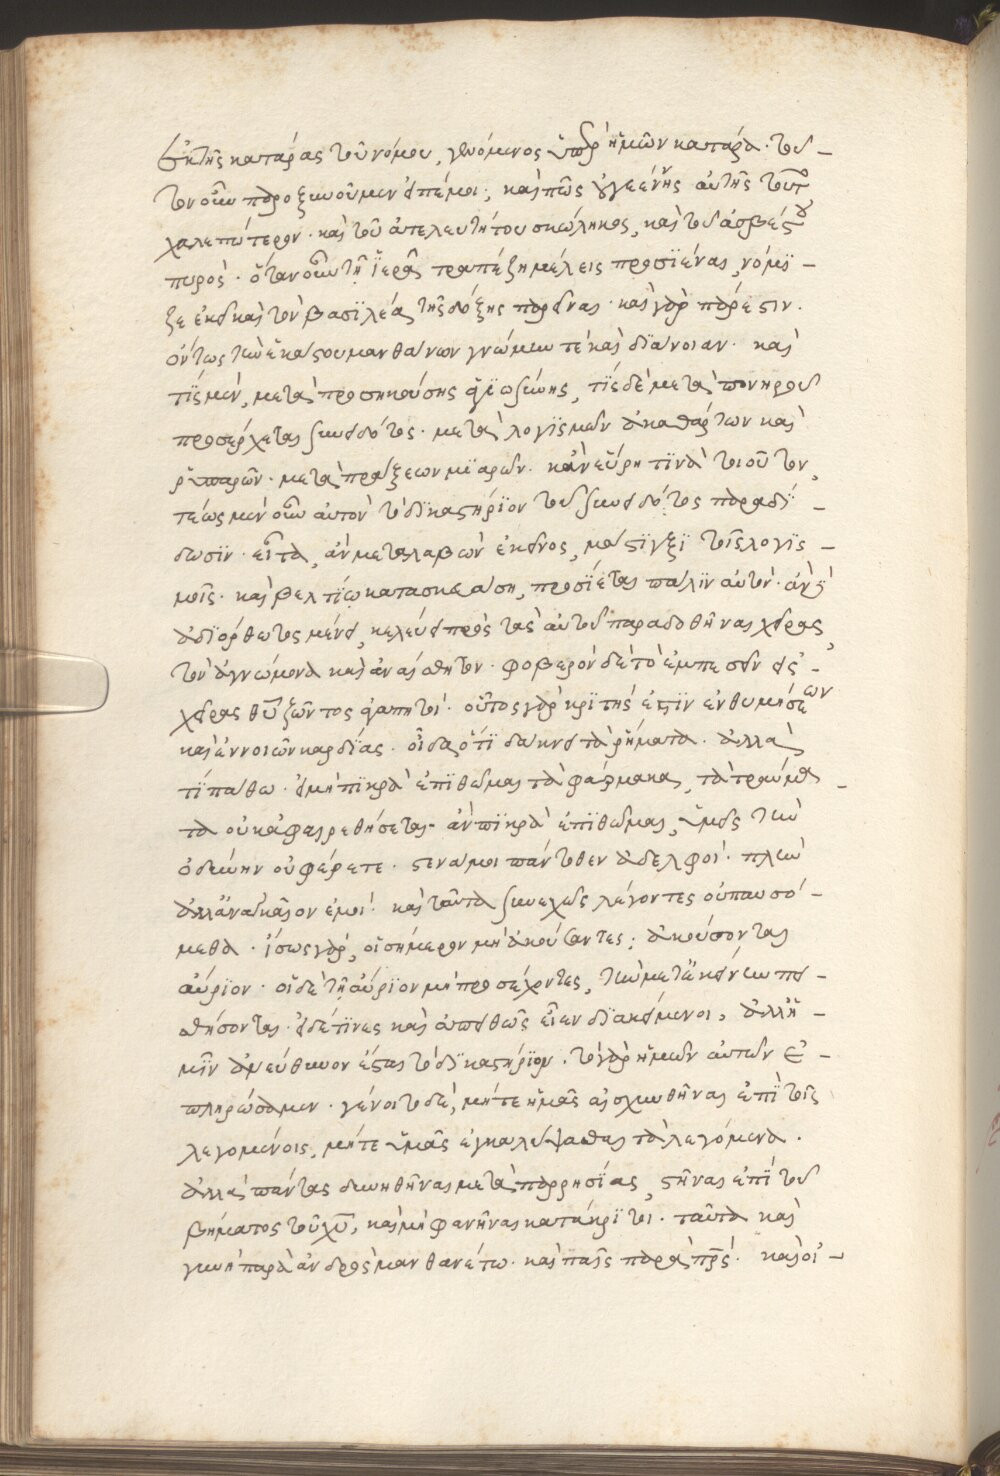 ἐκ τῆς κατάρας τοῦ νόμου, γενόμενος ὑπὲρ ἡμῶν κατάρα. τοῦ –
τον οὖν παροξυνοῦμεν εἰπέ μοι; καὶ πῶς γεέννης αὐτῆς τοῦτο
χαλεπώτερον. καὶ τοῦ ἀτελευτήτου σκώληκος, καὶ τοῦ ἀσβέστου
πυρός. ὅταν οὖν τῇ ἱερᾷ τραπέζῃ μέλεις προσϊέναι, νόμϊ –
ζε ἐκεῖ καὶ τὸν βασϊλέα τῆς δόξης παρεῖναι. καὶ γὰρ πάρεστιν.
οὕτως τὴν ἑκάστου μανθάνων γνώμην τὲ καὶ δϊάνοιαν. καὶ
τίς μὲν, μετὰ προσηκούσης ἁγϊωσύνης, τίς δὲ μετὰ πονηροῦ
προσέρχεται συνειδότος. μετὰ λογϊσμῶν ἀκαθάρτων καὶ
ῥυπαρῶν. μετὰ πράξεων μϊαρῶν. κἂν εὕρῃ τϊνὰ τοιοῦτον,
τέως μὲν οὖν αὐτὸν τῷ δϊκαστηρίῳ τοῦ συνειδότος παραδί –
δωσϊν. εἶτα, ἂν μεταλαβὼν ἐκεῖνος, μάστιγξϊ τοῖς λογϊς –
μοῖς. καὶ βελτίω κατασκευάσῃ, προσίεται πάλϊν αὐτόν. ἂν δὲ
ἀδϊόρθωτος μένει, κελεύει πρὸς τὰς αὐτοῦ παραδοθῆναι χεῖρας,
τὸν ἀγνώμονα καὶ ἀναίσθητον. φοβερὸν δὲ τὸ ἐμπεσεῖν εἰς –
χεῖρας θῦ ζῶντος ἀγαπητοί. οὗτος γὰρ κριτής ἐστϊν ἐνθυμήσεων
καὶ ἐννοιῶν καρδίας. οἶδα ὅτϊ δάκνει τὰ ῥήματα. ἀλλὰ
τί πάθω. εἰ μὴ πικρὰ ἐπϊθῶμαι τὰ φάρμακα, τὰ τραύμα –
τα οὐκ ἀφαιρεθήσεται. ἂν πϊκρὰ ἐπϊθῶμαι, ὑμεῖς τὴν
ὀδύνην οὐ φέρετε. στενά μοι πάντοθεν ἀδελφοί. πλὴν
ἀλλ' ἀναγκαῖον ἐμοί. καὶ ταῦτα συνεχῶς λέγοντες οὐ παυσό –
μεθα. ἴσως γὰρ, οἱ σήμερον μὴ ἀκούσαντες; ἀκούσονται
αὔριον. οἱ δὲ τῇ αὔριον μὴ προσέχοντες, τὴν μετ' ἐκείνην πει –
σθήσονται. εἰ δέ τϊνες καὶ ἀπειθῶς εἶεν δϊακείμενοι, ἀλλ' ἡ –
μῖν ἀνεύθυνον ἔσται τὸ δϊκαστήριον. τὸ γὰρ ἡμῶν αὐτῶν ἐ –
πληρώσαμεν. γένοιτο δὲ, μήτε ἡμᾶς αἰσχυνθῆναι ἐπὶ τοῖς
λεγομένοις, μήτε ὑμᾶς ἐγκαλύψασθαι τὰ λεγόμενα.
ἀλλὰ πάντας δυνηθῆναι μετὰ παρρησίας, στῆναι ἐπὶ τοῦ
βήματος τοῦ χῦ, καὶ μὴ φανῆναι κατάκριτοι. ταῦτα καὶ
γυνὴ παρὰ ἀνδρὸς μανθανέτω. καὶ παῖς παρὰ πρς. καὶ οἰ –